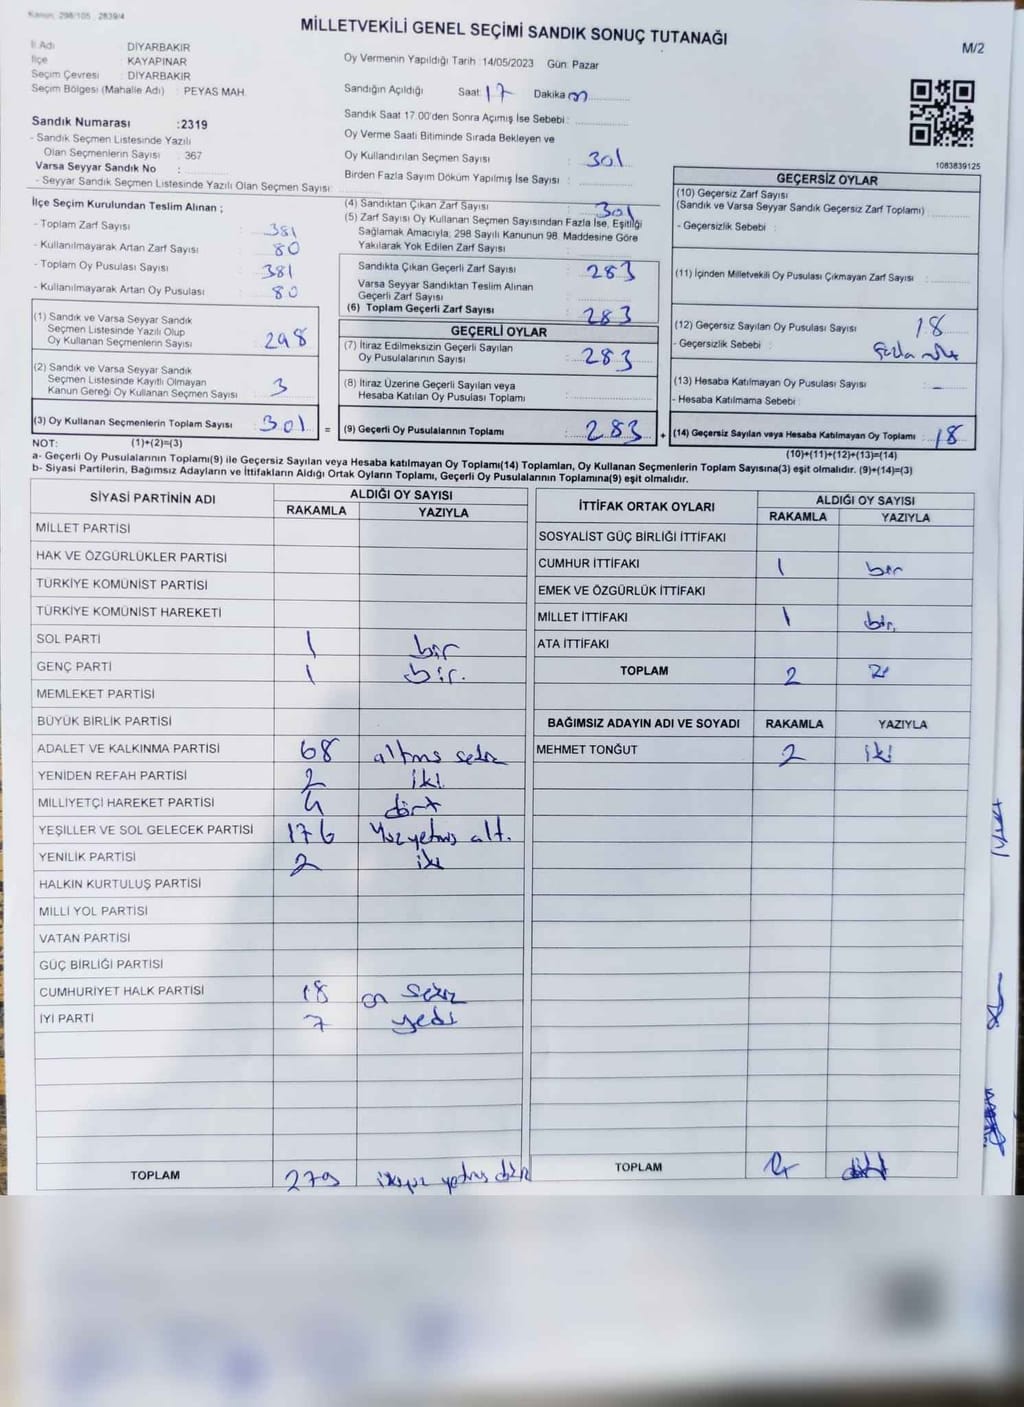 Kanun: 298/105, 2839/4
MİLLETVEKİLİ GENEL SEÇİMİ SANDIK SONUÇ TUTANAĞI
M/2
İl Adı : DİYARBAKIR
İlçe : KAYAPINAR
Seçim Çevresi : DİYARBAKIR
Seçim Bölgesi (Mahalle Adı) : PEYAS MAH.
Sandık Numarası :2319
- Sandık Seçmen Listesinde Yazılı
Olan Seçmenlerin Sayısı : 367
Varsa Seyyar Sandık No :
- Seyyar Sandık Seçmen Listesinde Yazılı Olan Seçmen Sayısı :
Oy Vermenin Yapıldığı Tarih :14/05/2023 Gün: Pazar
Sandığın Açıldığı Saat: 17 Dakika
Sandık Saat 17:00'den Sonra Açımış İse Sebebi :
Oy Verme Saati Bitiminde Sırada Bekleyen ve
Oy Kullandırılan Seçmen Sayısı : 301
Birden Fazla Sayım Döküm Yapılmış İse Sayısı :
1083839125
İlçe Seçim Kurulundan Teslim Alınan ;
- Toplam Zarf Sayısı : 381
- Kullanılmayarak Artan Zarf Sayısı : 80
- Toplam Oy Pusulası Sayısı : 381
- Kullanılmayarak Artan Oy Pusulası : 80
(1) Sandık ve Varsa Seyyar Sandık
Seçmen Listesinde Yazılı Olup
Oy Kullanan Seçmenlerin Sayısı : 298
(2) Sandık ve Varsa Seyyar Sandık
Seçmen Listesinde Kayıtlı Olmayan
Kanun Gereği Oy Kullanan Seçmen Sayısı : 3
(3) Oy Kullanan Seçmenlerin Toplam Sayısı : 301 =
(4) Sandıktan Çıkan Zarf Sayısı : 301
(5) Zarf Sayısı Oy Kullanan Seçmen Sayısından Fazla İse, Eşitliği
Sağlamak Amacıyla; 298 Sayılı Kanunun 98. Maddesine Göre
Yakılarak Yok Edilen Zarf Sayısı :
Sandıkta Çıkan Geçerli Zarf Sayısı : 283
Varsa Seyyar Sandıktan Teslim Alınan
Geçerli Zarf Sayısı :
(6) Toplam Geçerli Zarf Sayısı : 283
GEÇERLİ OYLAR
(7) İtiraz Edilmeksizin Geçerli Sayılan
Oy Pusulalarının Sayısı : 283
(8) İtiraz Üzerine Geçerli Sayılan veya
Hesaba Katılan Oy Pusulası Toplamı :
(9) Geçerli Oy Pusulalarının Toplamı : 283 +
GEÇERSİZ OYLAR
(10) Geçersiz Zarf Sayısı
(Sandık ve Varsa Seyyar Sandık Geçersiz Zarf Toplamı) :
- Geçersizlik Sebebi :
(11) İçinden Milletvekili Oy Pusulası Çıkmayan Zarf Sayısı :
(12) Geçersiz Sayılan Oy Pusulası Sayısı : 18
- Geçersizlik Sebebi : Fazla
(13) Hesaba Katılmayan Oy Pusulası Sayısı : -
- Hesaba Katılmama Sebebi :
(14) Geçersiz Sayılan veya Hesaba Katılmayan Oy Toplamı : 18
NOT: (1)+(2)=(3)
(10)+(11)+(12)+(13)=(14)
a- Geçerli Oy Pusulalarının Toplamı(9) ile Geçersiz Sayılan veya Hesaba katılmayan Oy Toplamı(14) Toplamları, Oy Kullanan Seçmenlerin Toplam Sayısına(3) eşit olmalıdır. (9)+(14)=(3)
b- Siyasi Partilerin, Bağımsız Adayların ve İttifakların Aldığı Ortak Oyların Toplamı, Geçerli Oy Pusulalarının Toplamına(9) eşit olmalıdır.
SİYASİ PARTİNİN ADI ALDIĞI OY SAYISI
RAKAMLA YAZIYLA
MİLLET PARTİSİ
HAK VE ÖZGÜRLÜKLER PARTİSİ
TÜRKİYE KOMÜNİST PARTİSİ
TÜRKİYE KOMÜNİST HAREKETİ
SOL PARTİ 1 bir
GENÇ PARTİ 1 bir.
MEMLEKET PARTİSİ
BÜYÜK BİRLİK PARTİSİ
ADALET VE KALKINMA PARTİSİ 68 altmış sekiz
YENİDEN REFAH PARTİSİ 2 iki
MİLLİYETÇİ HAREKET PARTİSİ 4 dört
YEŞİLLER VE SOL GELECEK PARTİSİ 176 Yüzyetmiş altı.
YENİLİK PARTİSİ 2 iki
HALKIN KURTULUŞ PARTİSİ
MİLLİ YOL PARTİSİ
VATAN PARTİSİ
GÜÇ BİRLİĞİ PARTİSİ
CUMHURİYET HALK PARTİSİ 18 on sekiz
İYİ PARTİ 7 yedi
TOPLAM 279 ikiyüz yetmiş dokuz
İTTİFAK ORTAK OYLARI ALDIĞI OY SAYISI
RAKAMLA YAZIYLA
SOSYALİST GÜÇ BİRLİĞİ İTTİFAKI
CUMHUR İTTİFAKI 1 bir
EMEK VE ÖZGÜRLÜK İTTİFAKI
MİLLET İTTİFAKI 1 bir.
ATA İTTİFAKI
TOPLAM 2 2
BAĞIMSIZ ADAYIN ADI VE SOYADI RAKAMLA YAZIYLA
MEHMET TONĞUT 2 iki
TOPLAM